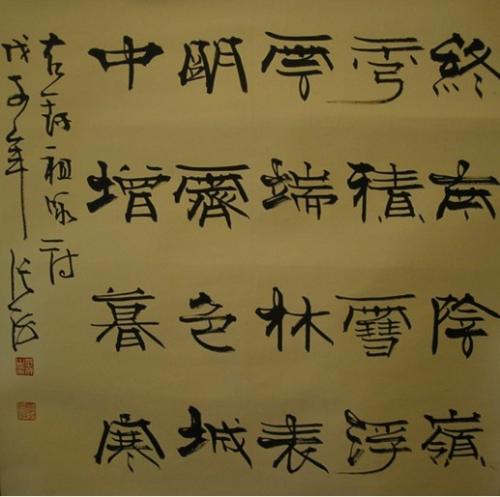 終南陰嶺
秀積雪浮
雲端林表
明霽色城
中增暮寒
祖咏詩
戊子年